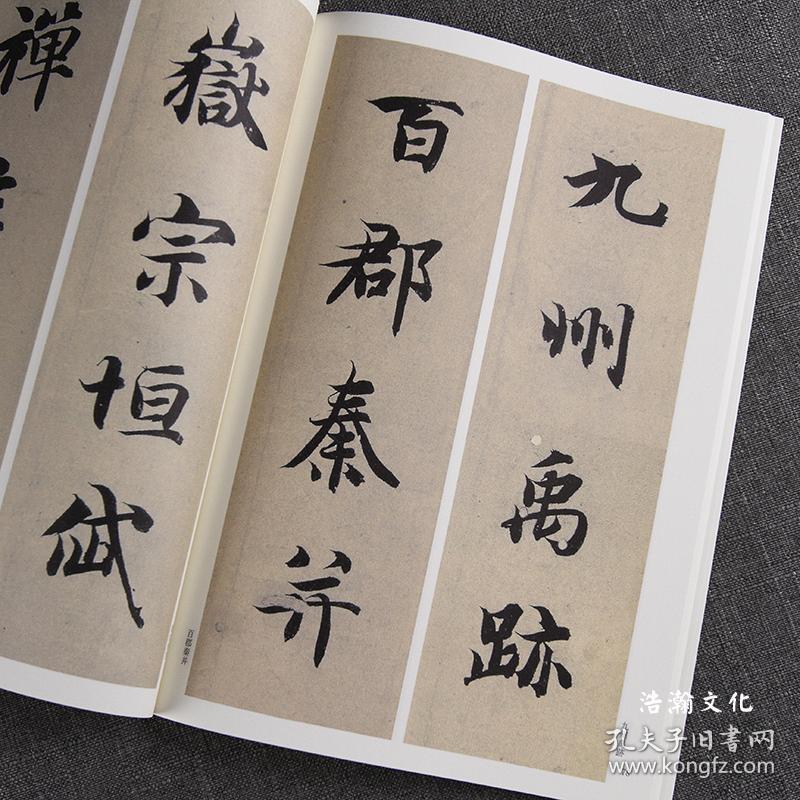 九州禹跡
百郡秦并
嶽宗恒岱
禪
百郡秦并
浩瀚文化
孔夫子旧書网
www.kongfz.com